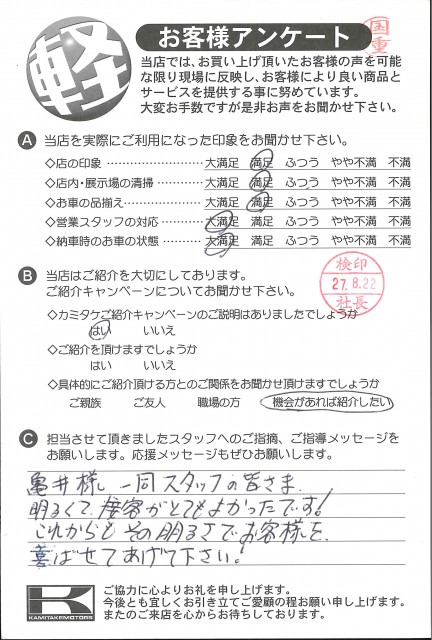 軽
お客様アンケート
国重
当店では、お買い上げ頂いたお客様の声を可能
な限り現場に反映し、お客様により良い商品と
サービスを提供する事に努めています。
大変お手数ですが是非お声をお聞かせ下さい。
A 当店を実際にご利用になった印象をお聞かせ下さい。
◇店の印象 ………………… 大満足 満足 ふつう やや不満 不満
◇店内・展示場の清掃 ……… 大満足 満足 ふつう やや不満 不満
◇お車の品揃え ……………… 大満足 満足 ふつう やや不満 不満
◇営業スタッフの対応 ……… 大満足 満足 ふつう やや不満 不満
◇納車時のお車の状態 ……… 大満足 満足 ふつう やや不満 不満
B 当店はご紹介を大切にしてあります。
ご紹介キャンペーンについてお聞かせ下さい。
検印
27.8.22
社長
◇カミタケご紹介キャンペーンのご説明はありましたでしょうか
はい いいえ
◇ご紹介を頂けますでしょうか
はい いいえ
◇具体的にご紹介頂ける方とのご関係をお聞かせ頂けますでしょうか
ご親族 ご友人 職場の方 機会があれば紹介したい
C 担当させて頂きましたスタッフへのご指摘、ご指導メッセージを
お願いします。応援メッセージもぜひお願いします。
亀井様し 一同スタッフの皆さま
明るくて、接客がとてもよかったです!
これからも その明るさでお客様を、
喜ばせてあげて下さい!
K
KAMITAKEMOTORS
ご協力に心よりお礼を申し上げます。
今後とも宜しくお引き立てご愛顧の程お願い申し上げます。
またのご来店を心からお待ちしております。